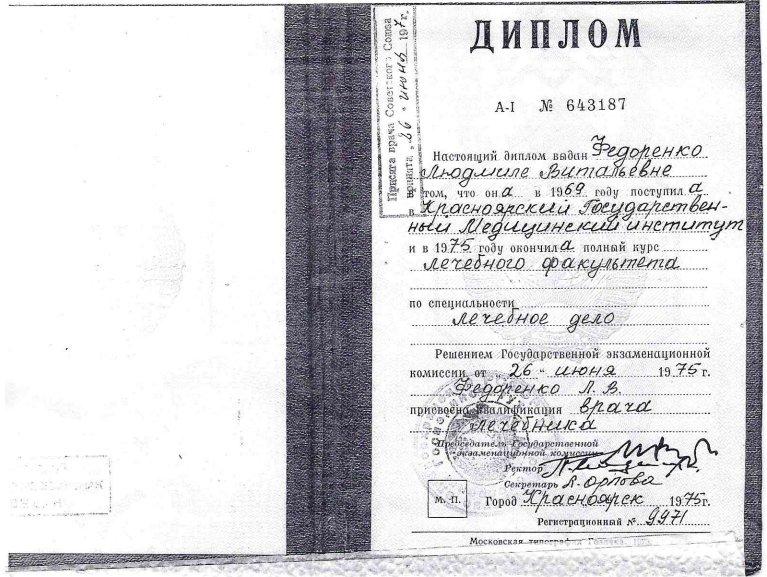 Присяга врача Советского Союза
принята „26 " июня 197 г.
ДИПЛОМ
А-I № 643187
Настоящий диплом выдан Федоренко
Людмиле Витальевне
в том, что она в 1969 году поступила
в Красноярский Государствен-
ный Медицинский институт
и в 1975 году окончила полный курс
лечебного факультета
по специальности
лечебное дело
Решением Государственной экзаменационной
комиссии от „26 " июня 1975 г.
Федоренко Л. В.
присвоена квалификация врача
лечебника
Председатель Государственной
экзаменационной комиссии
Ректор
Секретарь Л. Орлова
М. П. Город Красноярск 1975 г.
Регистрационный № 9971
Московская типография Гознака.